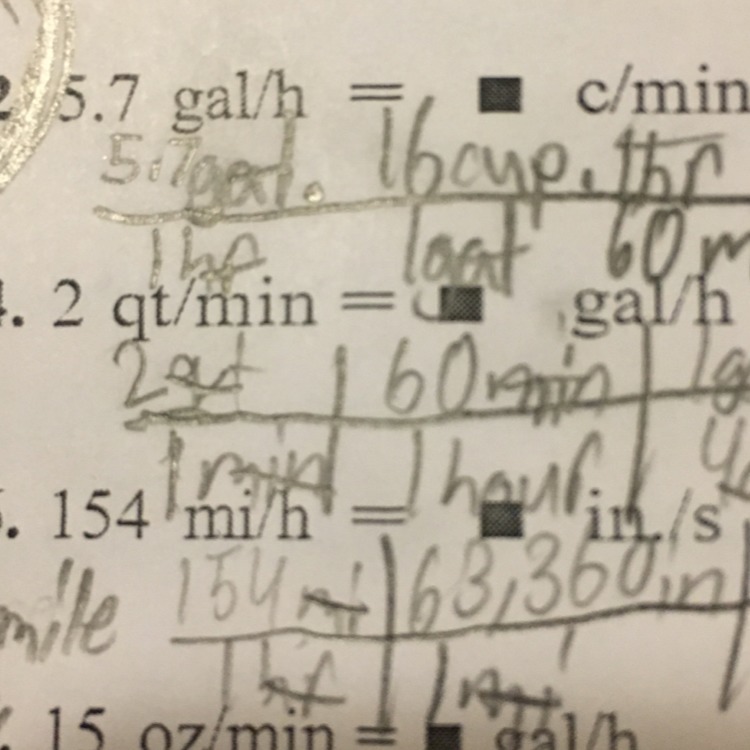 5.7 gal/h = ■ c/min
5.7gal. 16cup. 1hr
1hr 1gal 60 m
. 2 qt/min = ■ gal/h
2qt 60min 1g
1min 1hour 4
. 154 mi/h = ■ in./s
154 mi 63,360in
mile
1hr 1mi
15 oz/min = ■ gal/h